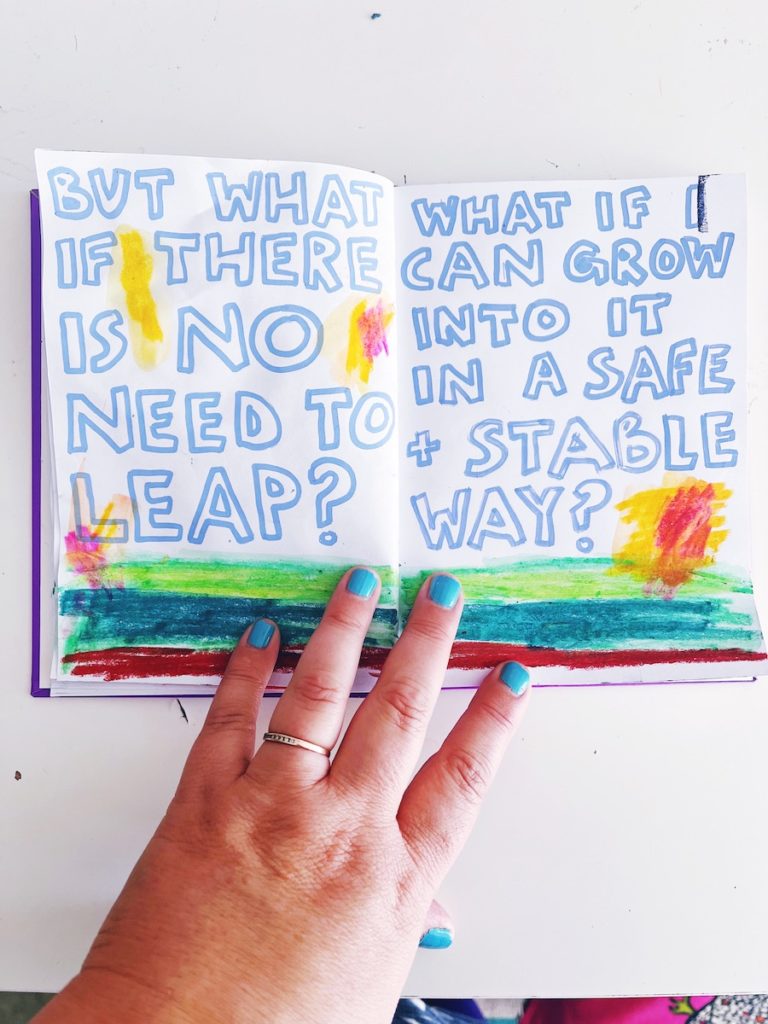 BUT WHAT
IF THERE
IS NO
NEED TO
LEAP?
WHAT IF I
CAN GROW
INTO IT
IN A SAFE
+ STABLE
WAY?